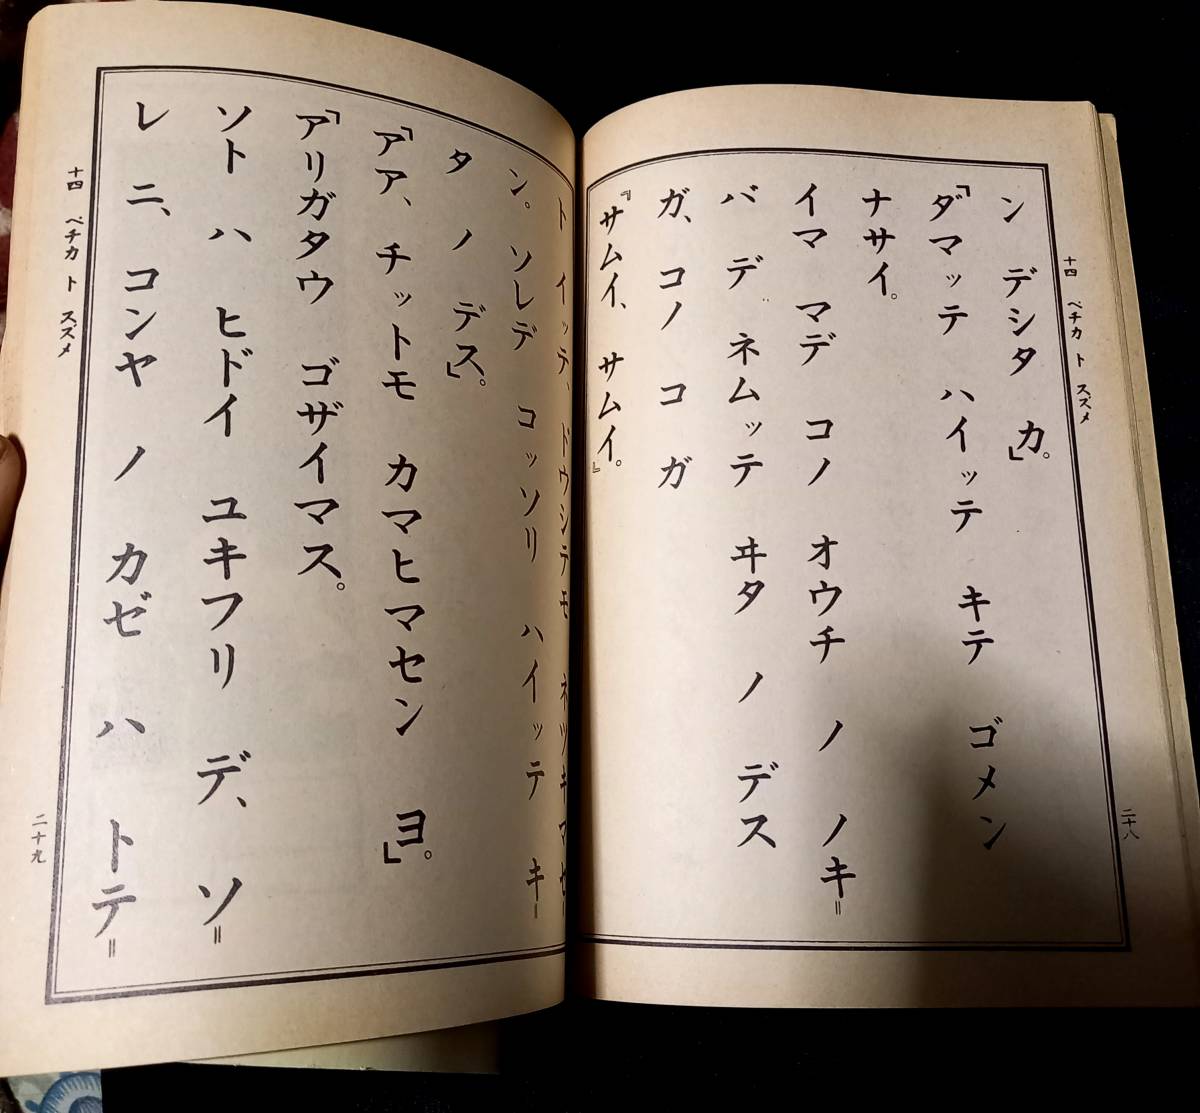 十四 ペチカ ト スズメ
ン デシタ カ。」
「ダマッテ ハイッテ キテ ゴメン
ナサイ。
イマ マデ コノ オウチ ノ ノキ=
バ デ ネムッテ ヰタ ノ デス
ガ、 コノ コ ガ
『サムイ、 サムイ。』
二十八
ト イッテ、 ドウシテモ ネツキマセ=
ン。 ソレデ コッソリ ハイッテ キ=
タ ノ デス。」
「アア、 チットモ カマヒマセン ヨ。」
「アリガタウ ゴザイマス。
ソト ハ ヒドイ ユキフリ デ、 ソ=
レ ニ、 コンヤ ノ カゼ ハ トテ=
十四 ペチカ ト スズメ
二十九